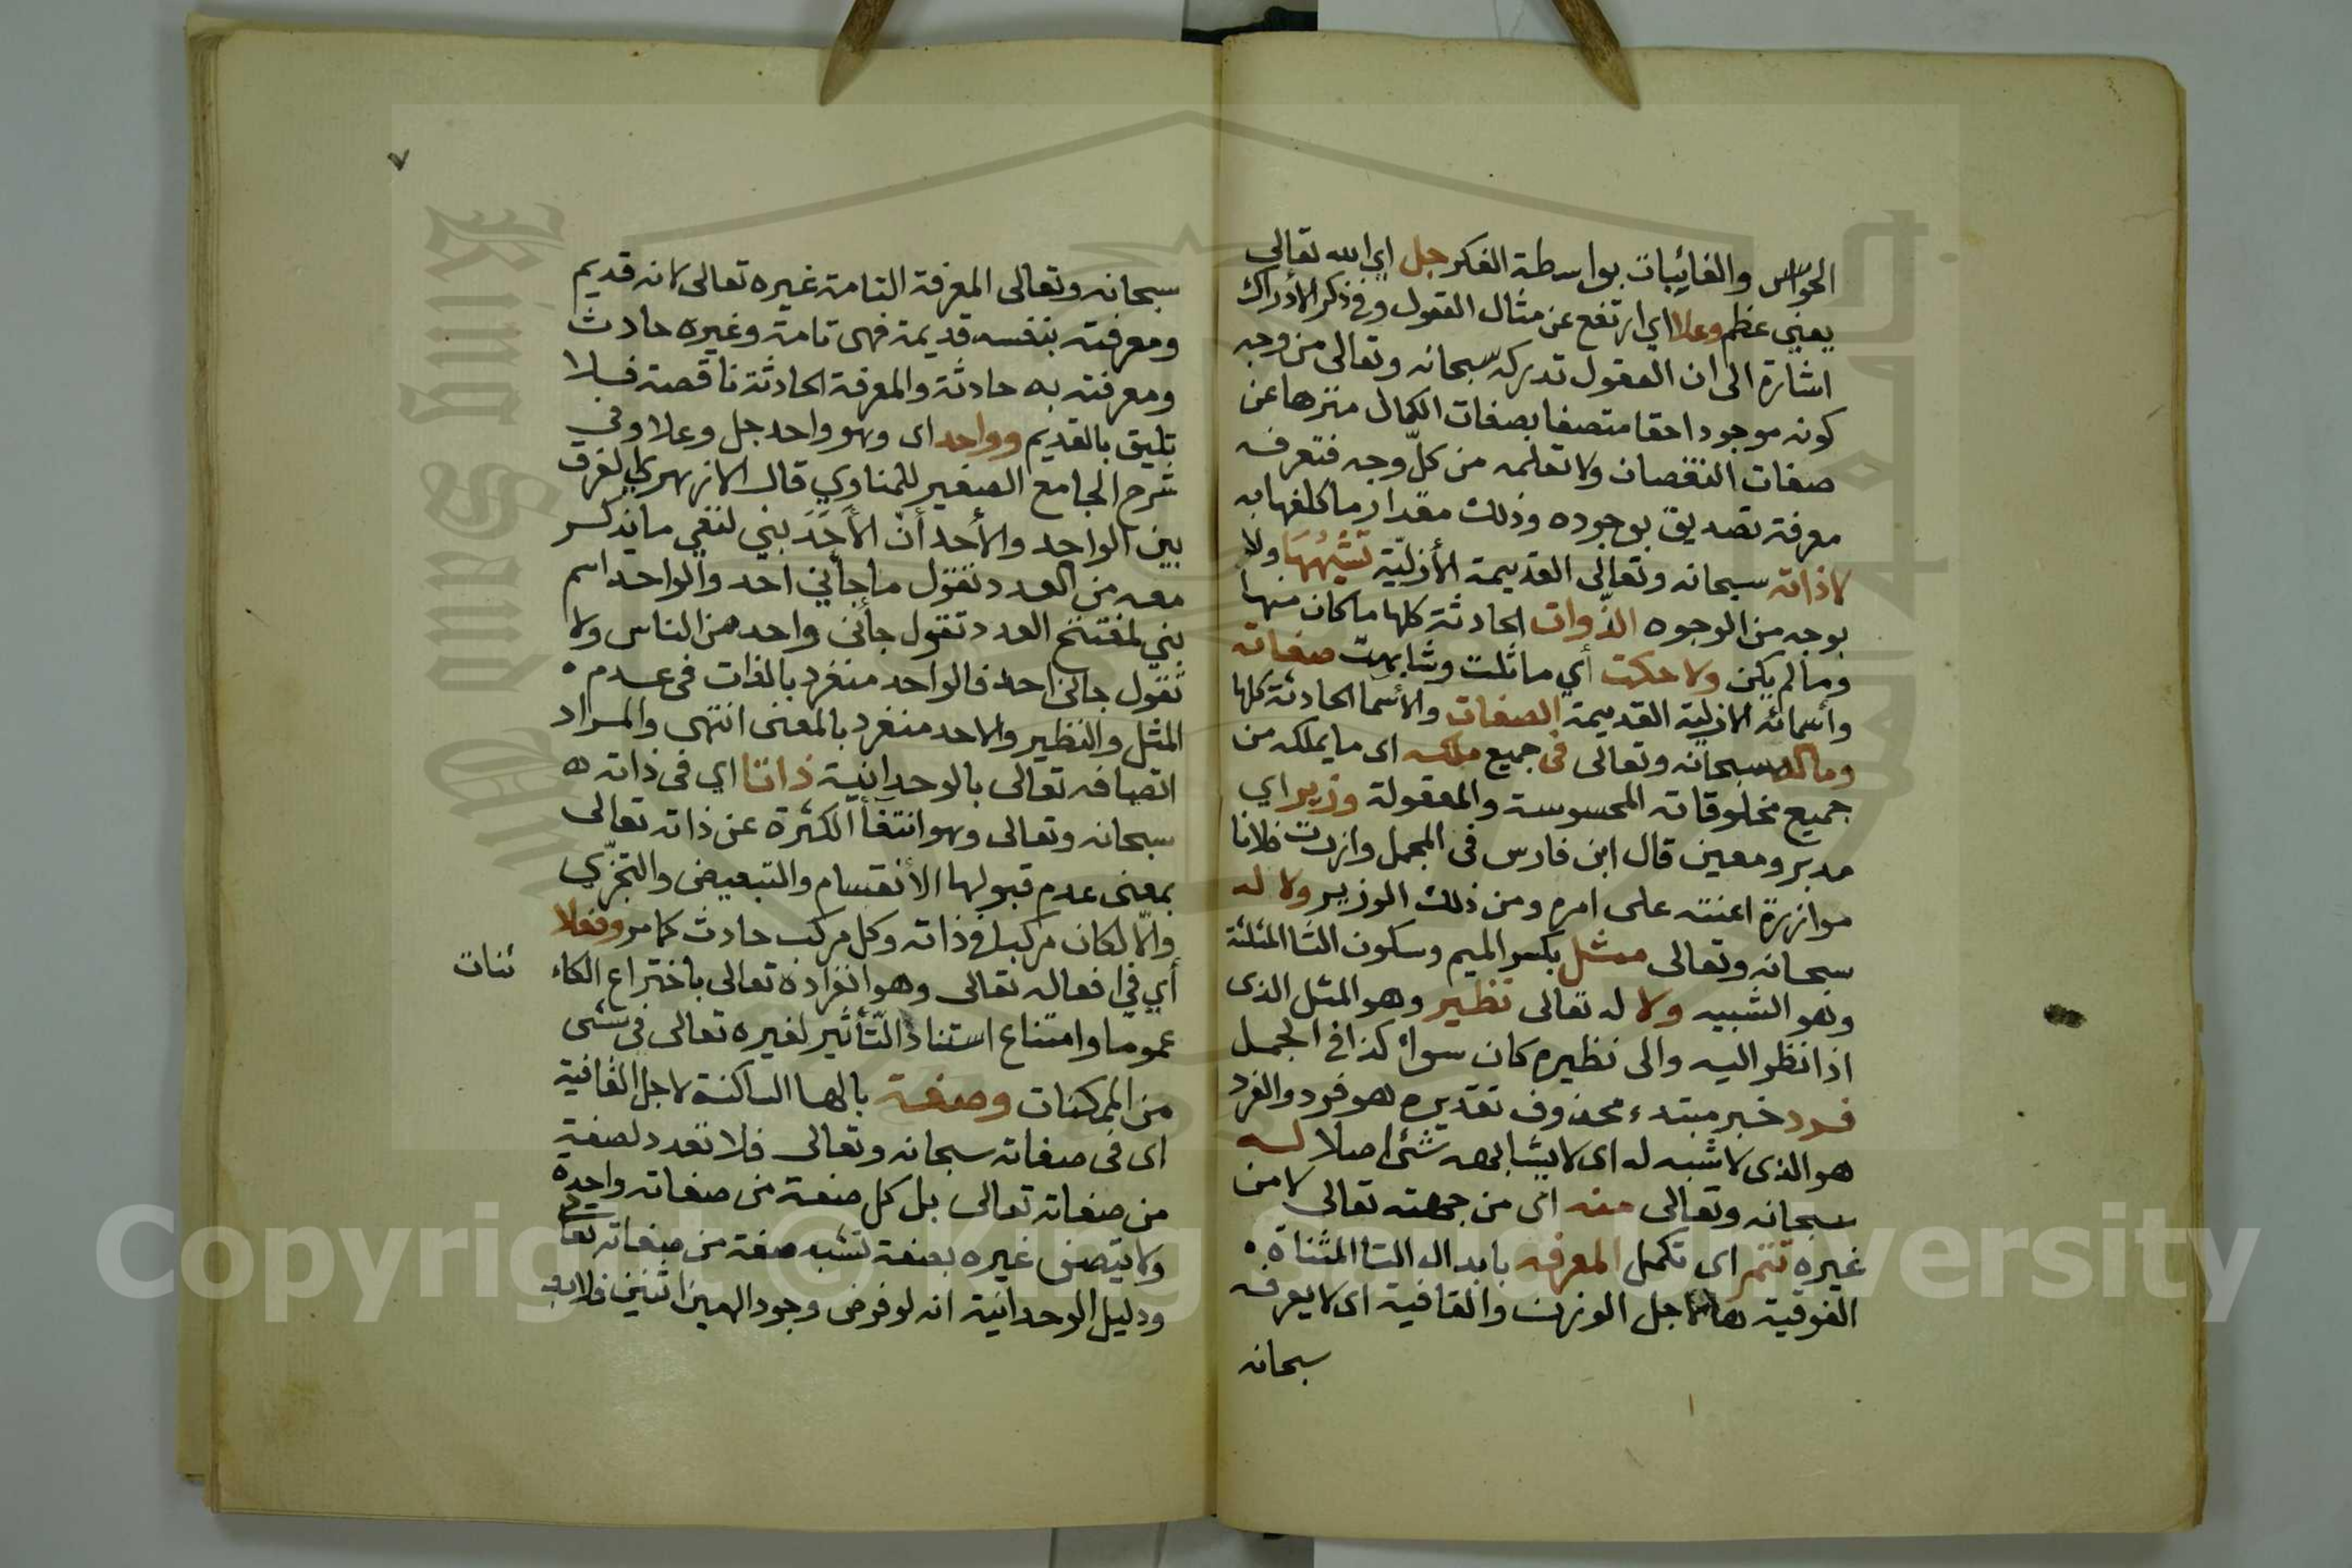 الحواس والغائيبات بواسطة الفكر جل اي الله تعالى
يعني عظم وعلا اي ارتفع عن مثال العقول وفي ذكر الأدراك
اشارة الى ان العقول تدركه سبحانه وتعالى من وجه
كونه موجودا حقا متصفا بصفات الكمال منزها عن
صفات النقصان ولا تعلمه من كلّ وجه فتعرفه
معرفة تصديق بوجوده وذلك مقدار ما كلفها به
لا ذاته سبحانه وتعالى القديمة الأزليّة تشبهها ولا
بوجه من الوجوه الذّوات الحادثة كلها ما كان منها
وما لم يكن ولا حكت أي ماثلت وشابهت صفاته
وأسمائه الازلية القديمة الصفات والأسما الحادثة كلها
وماله سبحانه وتعالى في جميع ملكه اى ما يملكه من
جميع مخلوقاته المحسوسة والمعقولة وزير اي
مدبر ومعين قال ابن فارس في المجمل وازرت فلانا
موازرة اعنته على امره ومن ذلك الوزير ولا له
سبحانه وتعالى ممثل بكسر الميم وسكون الثا المثلثة
وهو الشبيه ولا له تعالى نظير وهو المثل الذى
اذا نظر اليه والى نظيره كان سواء كذا في المجمل
فرد خبر مبتدء محذوف تقديره هو فرد والفرد
هو الذى لا شبه له اى لا يشابهه شئ اصلا له
سبحانه وتعالى منه اى من جهته تعالى لا من
غيره تتم اى تكمل المعرفه بابدال التا المثناة
الفوقية هاء لاجل الوزن والقافية اى لا يعرفه
سبحانه
٧
سبحانه وتعالى المعرفة التامة غيره تعالى لانه قديم
ومعرفته بنفسه قديمة فهى تامة وغيره حادث
ومعرفته به حادثة والمعرفة الحادثة ناقصة فلا
تليق بالقديم وواحد اى وهو واحد جل وعلا وفي
شرح الجامع الصغير للمناوي قال الازهري الفرق
بين الواحد والأحد أنّ الأحَدَ بني لنفي ما يذكر
معه من العدد تقول ما جأني احد والواحد اسم
بني لمفتتح العدد تقول جأني واحد من الناس ولا
تقول جاني احد فالواحد منفرد بالذات في عدم
المثل والنظير والاحد منفرد بالمعنى انتهى والمراد
اتصافه تعالى بالوحدانية ذاتا اي في ذاته
سبحانه وتعالى وهو انتفأ الكثرة عن ذاته تعالى
بمعنى عدم قبولها الأنقسام والتبعيض والتجزّي
والّا لكان مركبا في ذاته وكل مركب حادث كما مر وفعلا
أي في افعاله تعالى وهو انفراده تعالى باختراع الكاء ئنات
عموما وامتناع استناد التّأثير لغيره تعالى في شئ
من الممكنات وصفة بالها الساكنة لاجل القافية
اى في صفاته سبحانه وتعالى فلا تعدد لصفة
من صفاته تعالى بل كل صفة من صفاته واحدة
ولا يتصف غيره بصفة تشبه صفة من صفاته تعالى
ودليل الوحدانية انه لو فرض وجود الهين اثنين فلا بد
Copyright © King Saud University